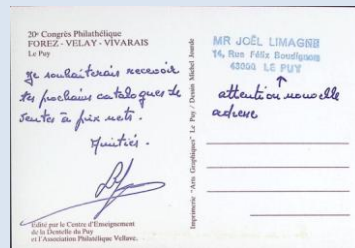 20e Congrès Philathélique
FOREZ - VELAY - VIVARAIS
Le Puy
Je souhaiterais recevoir
tes prochains catalogues de
ventes à prix nets.
Amitiés.
Edité par le Centre d'Enseignement
de la Dentelle du Puy
et l'Association Philatélique Vellave.
Imprimerie "Arts Graphiques" Le Puy / Dessin Michel Jourde
MR JOËL LIMAGNE
14, Rue Félix Boudignon
43000 LE PUY
attention nouvelle
adresse